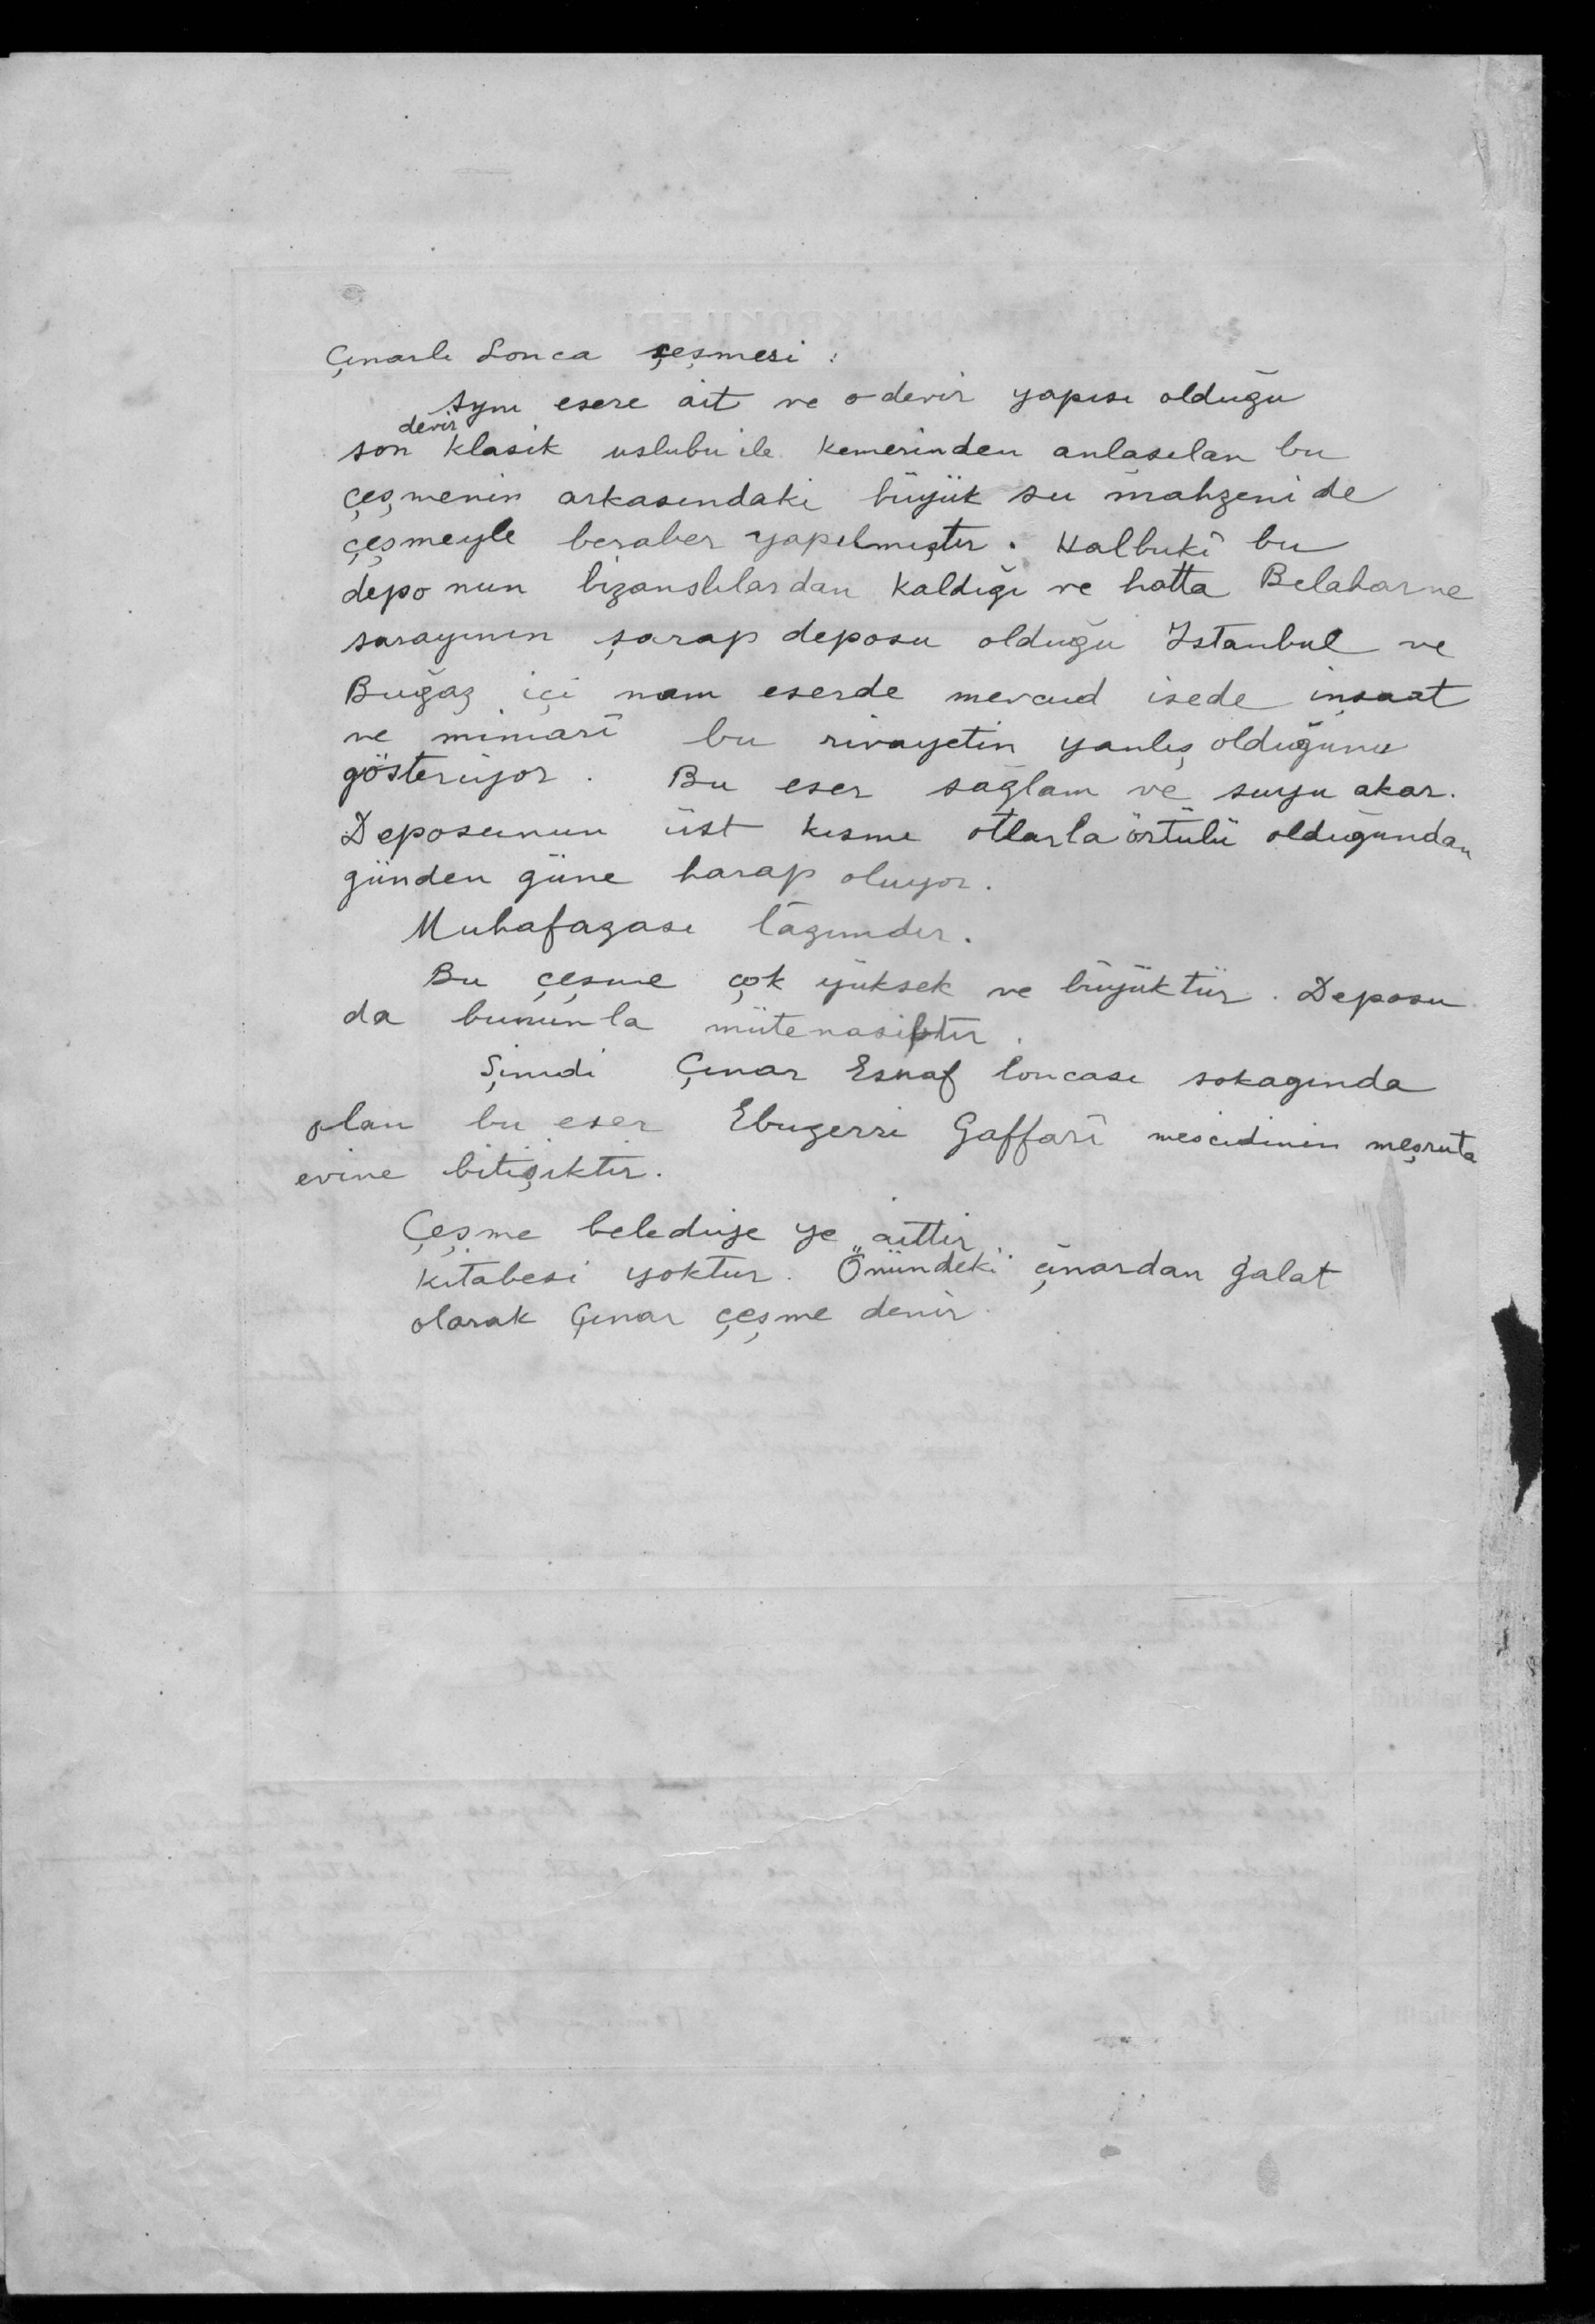 Çınarlı Lonca çeşmesi :
Aynı esere ait ve o devir yapısı olduğu
son devir klasik uslubu ile kemerinden anlaşılan bu
çeşmenin arkasındaki büyük su mahzeni de
çeşmeyle beraber yapılmıştır. Halbuki bu
depo nun bizanslılardan kaldığı ve hatta Belaharne
sarayının şarap deposu olduğu Istanbul ve
Buğaz içi nam eserde mevcud isede inşaat
ve mimarî bu rivayetin yanlış olduğunu
gösteriyor. Bu eser sağlam ve suyu akar.
Deposunun üst kısmı otlarla örtülü olduğundan
günden güne harap oluyor.
Muhafazası lâzımdır.
Bu çeşme çok yüksek ve büyüktür. Deposu
da bununla mütenasiptir.
Şimdi Çınar Esnaf loncası sokağında
olan bu eser Ebuzerri Gaffarî mescidinin meşruta
evine bitişiktir.
Çeşme belediye ye aittir
Kitabesi yoktur. Önündeki çınardan galat
olarak Çınar çeşme denir.